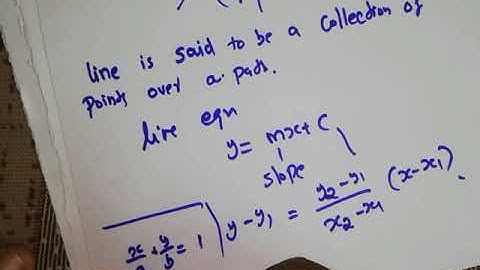 line is said to be a collection of
points over a path.
line eqn
y = mx + c
slope
y - y₁ = y₂ - y₁ / x₂ - x₁ (x - x₁).
x/a + y/b = 1